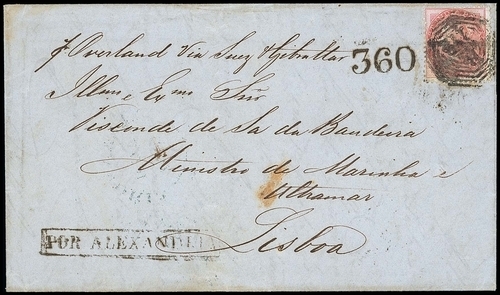 p Overland Via Suez & Gibraltar
360
Illmo e Exmo Snr
Visconde de Sa da Bandeira
Ministro de Marinha e
Ultramar
Lisboa
POR ALEXANDRIA